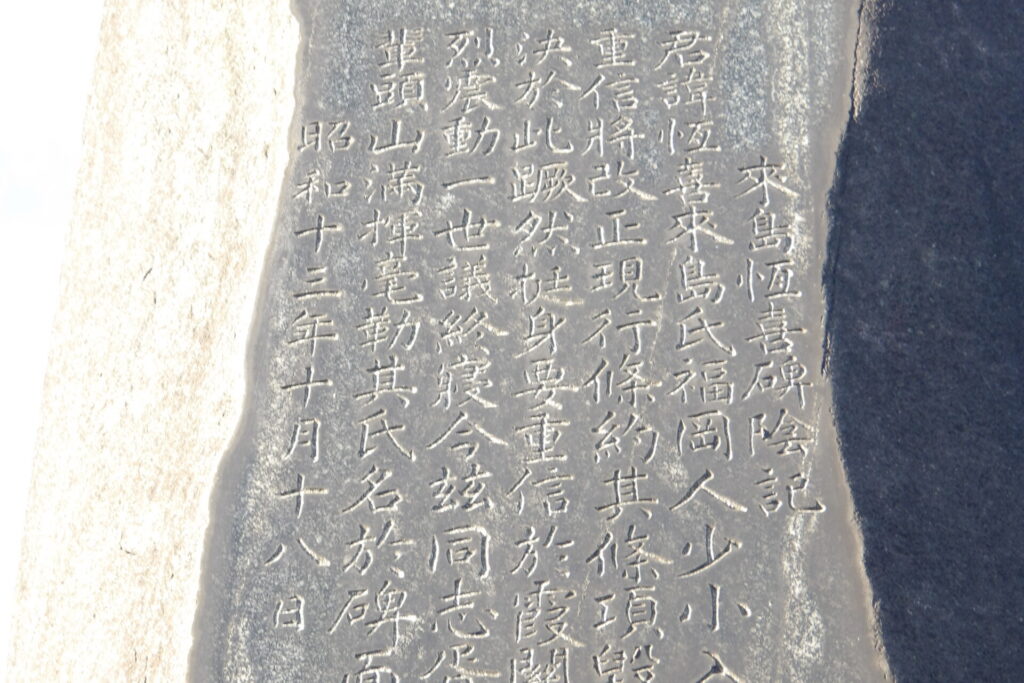 來島恆喜碑陰記
君諱恆喜來島氏福岡人少小入
重信將改正現行條約其條項毀
決於此蹶然挺身要重信於霞關
烈震動一世議終寢今茲同志胥
輩頭山滿揮毫勒其氏名於碑面
昭和十三年十月十八日